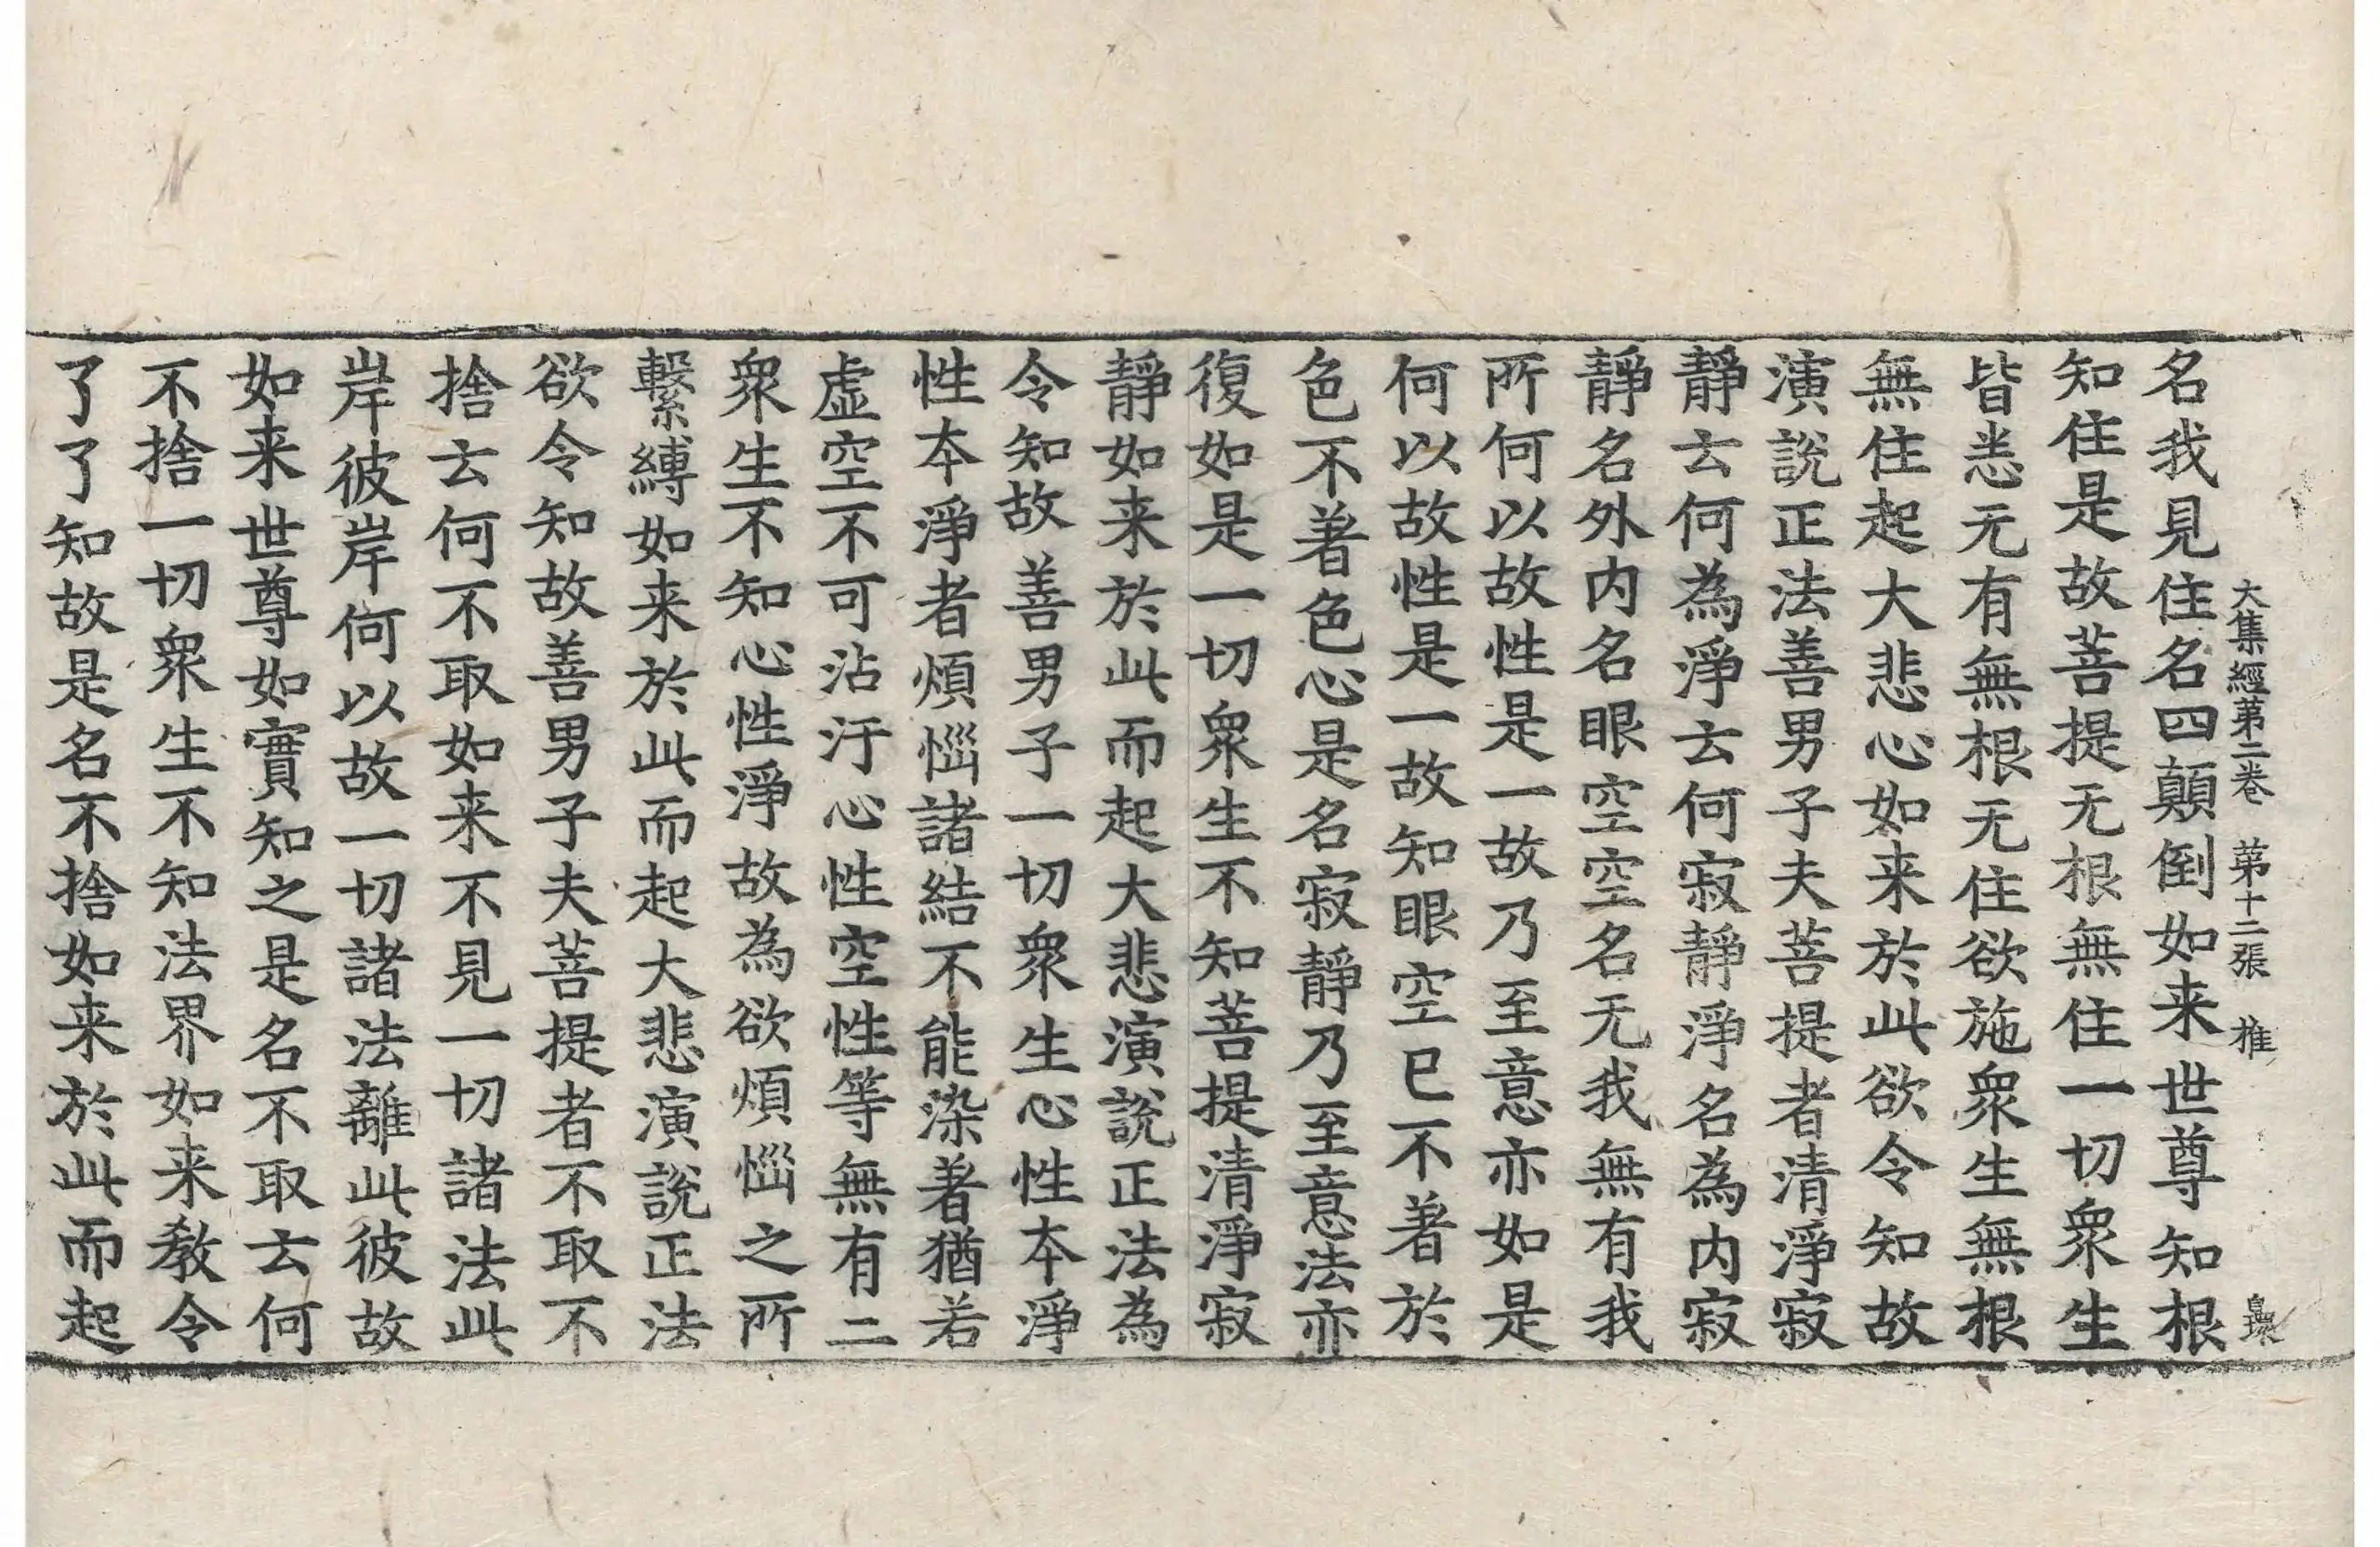 大集經第二卷 第十二張 推
名我見住名四顛倒如来世尊知根
知住是故菩提无根無住一切衆生
皆恙无有無根无住欲施衆生無根
無住起大悲心如来於此欲令知故
演說正法善男子夫菩提者清淨寂
靜云何為淨云何寂靜淨名為內寂
靜名外內名眼空空名无我無有我
所何以故性是一故乃至意亦如是
何以故性是一故知眼空已不著於
色不著色心是名寂靜乃至意法亦
復如是一切衆生不知菩提清淨寂
靜如来於此而起大悲演說正法為
令知故善男子一切衆生心性本淨
性本淨者煩惱諸結不能染著猶若
虛空不可沾汙心性空性等無有二
衆生不知心性淨故為欲煩惱之所
繫縛如来於此而起大悲演說正法
欲令知故善男子夫菩提者不取不
捨云何不取如来不見一切諸法此
岸彼岸何以故一切諸法離此彼故
如来世尊如實知之是名不取云何
不捨一切衆生不知法界如来教令
了了知故是名不捨如来於此而起